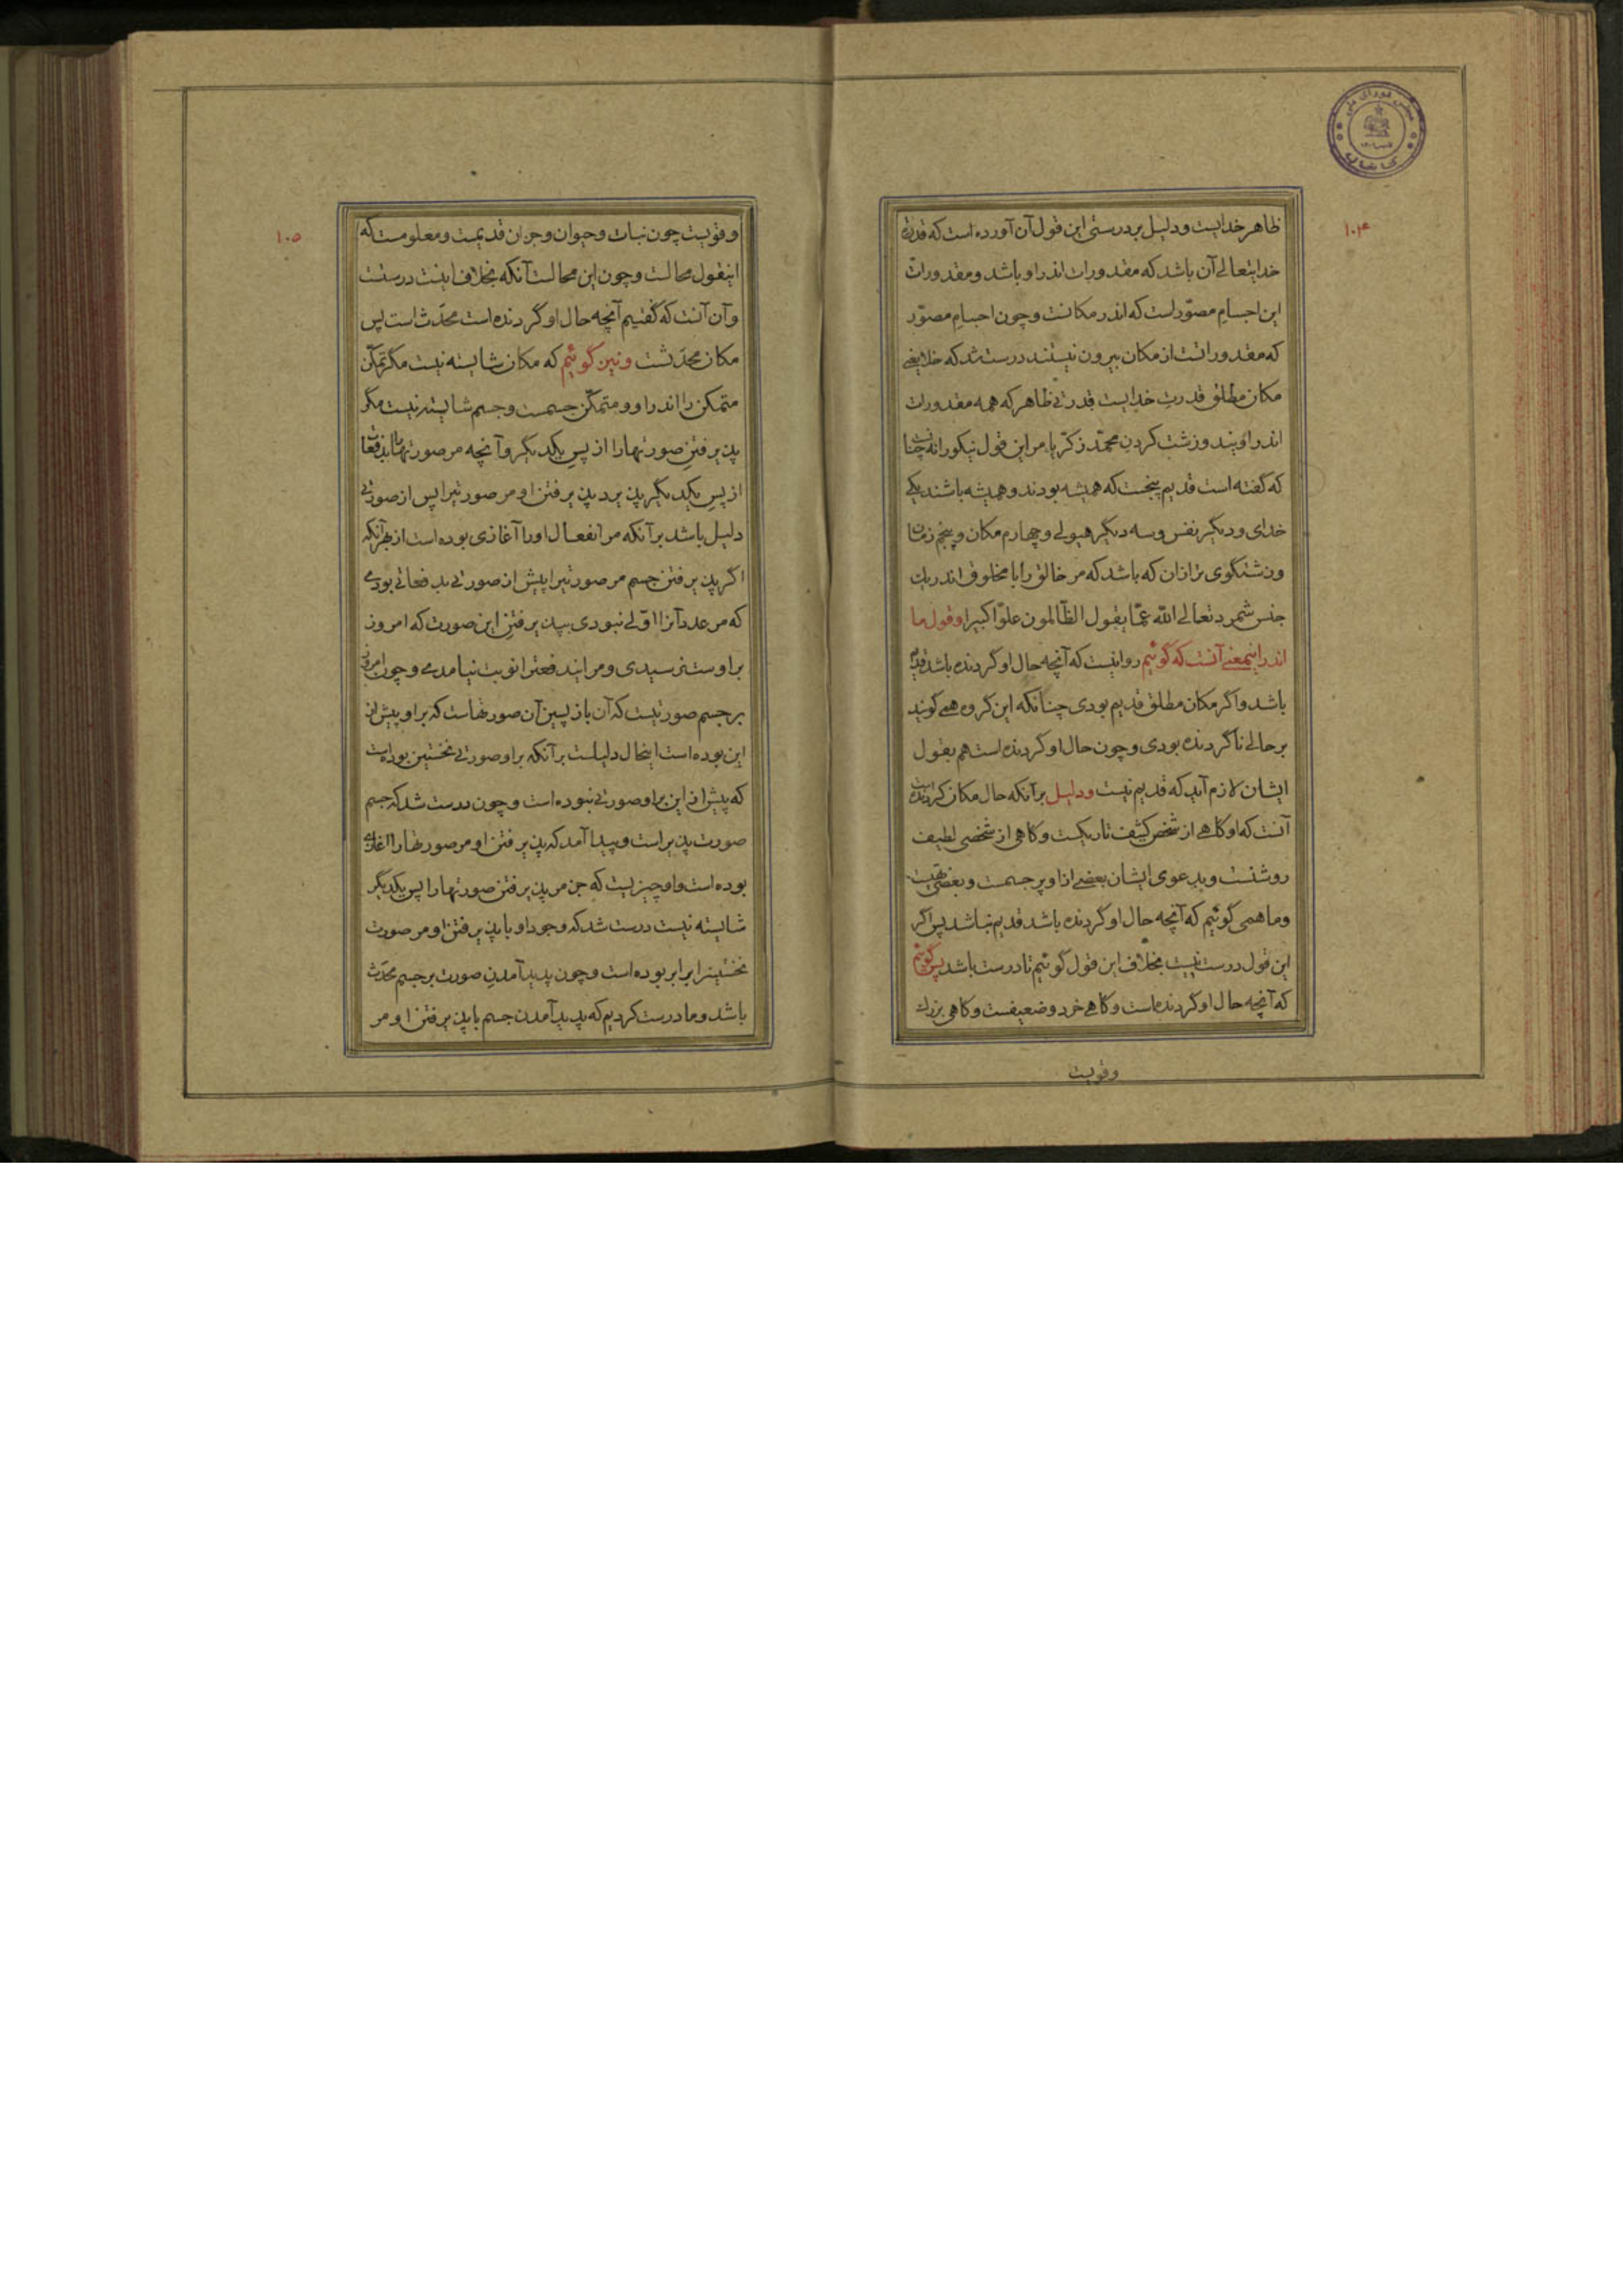 ۱۰۴
ظاهر خدایست و دلیل بر درستی این قول آن آورده است که قدرت
خدایتعالی آن باشد که مقدورات اندر او باشد و مقدورات
این اجسام مصوّرست که اندر مکانست و چون اجسام مصوّر
که مقدوراتست از مکان بیرون نیستند درست شد که خلا یعنی
مکان مطلق قدرت خدایست قدرتی ظاهر که همه مقدورات
اندر اویند و زشت کردن محمّد زکریا مر این قول نیکو را نه چنانست
که گفته است قدیم پنجست که همیشه بودند و همیشه باشند یکی
خدای و دیگر نفس و سه دیگر هیولی و چهارم مکان و پنجم زمان
و زشتگوی تر از آن که باشد که مر خالق را با مخلوق اندر یک
جنس شمرد تعالی الله عمّا یقول الظّالمون علوّا کبیرا و قول ما
اندر اینمعنی آنست که گوئیم روا نیست که آنچه حال او گردنده باشد قدیم
باشد و اگر مکان مطلق قدیم بودی چنانکه این گروه همی گویند
بر حالی ناگردنده بودی و چون حال او گردنده است هم بقول
ایشان لازم آید که قدیم نیست و دلیل بر آنکه حال مکان گردنده است
آنست که او گاهی از شخص کثیف تاریکست و گاهی از شخصی لطیف
روشنست و بدعوی ایشان بعضی از او پر جسمست و بعضی تهیست
و ما همی گوئیم که آنچه حال او گردنده باشد قدیم نباشد پس اگر
این قول درست نیست بخلاف این قول گوئیم تا درست باشد پس گوئیم
که آنچه حال او گردنده است و گاهی خرد و ضعیفست و گاهی بزرك
وقویست
۱۰۵
و قویست چون نبات و حیوان و جز آن قدیمست و معلومست که
اینقول محالست و چون این محالست آنکه بخلاف اینست درستست
و آن آنست که گفتیم آنچه حال او گردنده است محدَث است پس
مکان محدَثست و نیز گوئیم که مکان شایسته نیست مگر تمکّن
متمکن را اندر او و متمکّن جسمست و جسم شایسته نیست مگر
پذیرفتن صورتها را از پس یکدیگر و آنچه مر صورتها را بدفعات
از پس یکدیگر پذیرد پذیرفتن او مر صورتیرا پس از صورتی
دلیل باشد بر آنکه مر انفعال او را آغازی بوده است از بهر آنکه
اگر پذیرفتن جسم مر صورتیرا پیش از صورتی بدفعاتی بودی
که مر عدد آنرا اوّلی نبودی بپذیرفتن این صورت که امروز
بر اوست نرسیدی و مر ایندفعترا نوبت نیامدی و چون امروز
بر جسم صورتیست که آن بازپسین آن صورتهاست که بر او پیش از
این بوده است اینحال دلیلست بر آنکه بر او صورتی نخستین بوده است
که پیش از این بر او صورتی نبوده است و چون درست شد که جسم
صورت پذیر است و پیدا آمد که پذیرفتن او مر صورتها را آغازی
بوده است و او چیزیست که جز مر پذیرفتن صورتها را پس یکدیگر
شایسته نیست درست شد که وجود او با پذیرفتن او مر صورت
نخستینرا برابر بوده است و چون پدید آمدن صورت بر جسم محدَث
باشد و ما درست کردیم که پدید آمدن جسم با پذیرفتن او مر